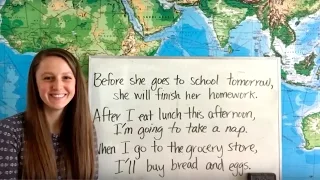 Before she goes to school tomorrow,
she will finish her homework.
After I eat lunch this afternoon,
I'm going to take a nap.
When I go to the grocery store,
I'll buy bread and eggs.